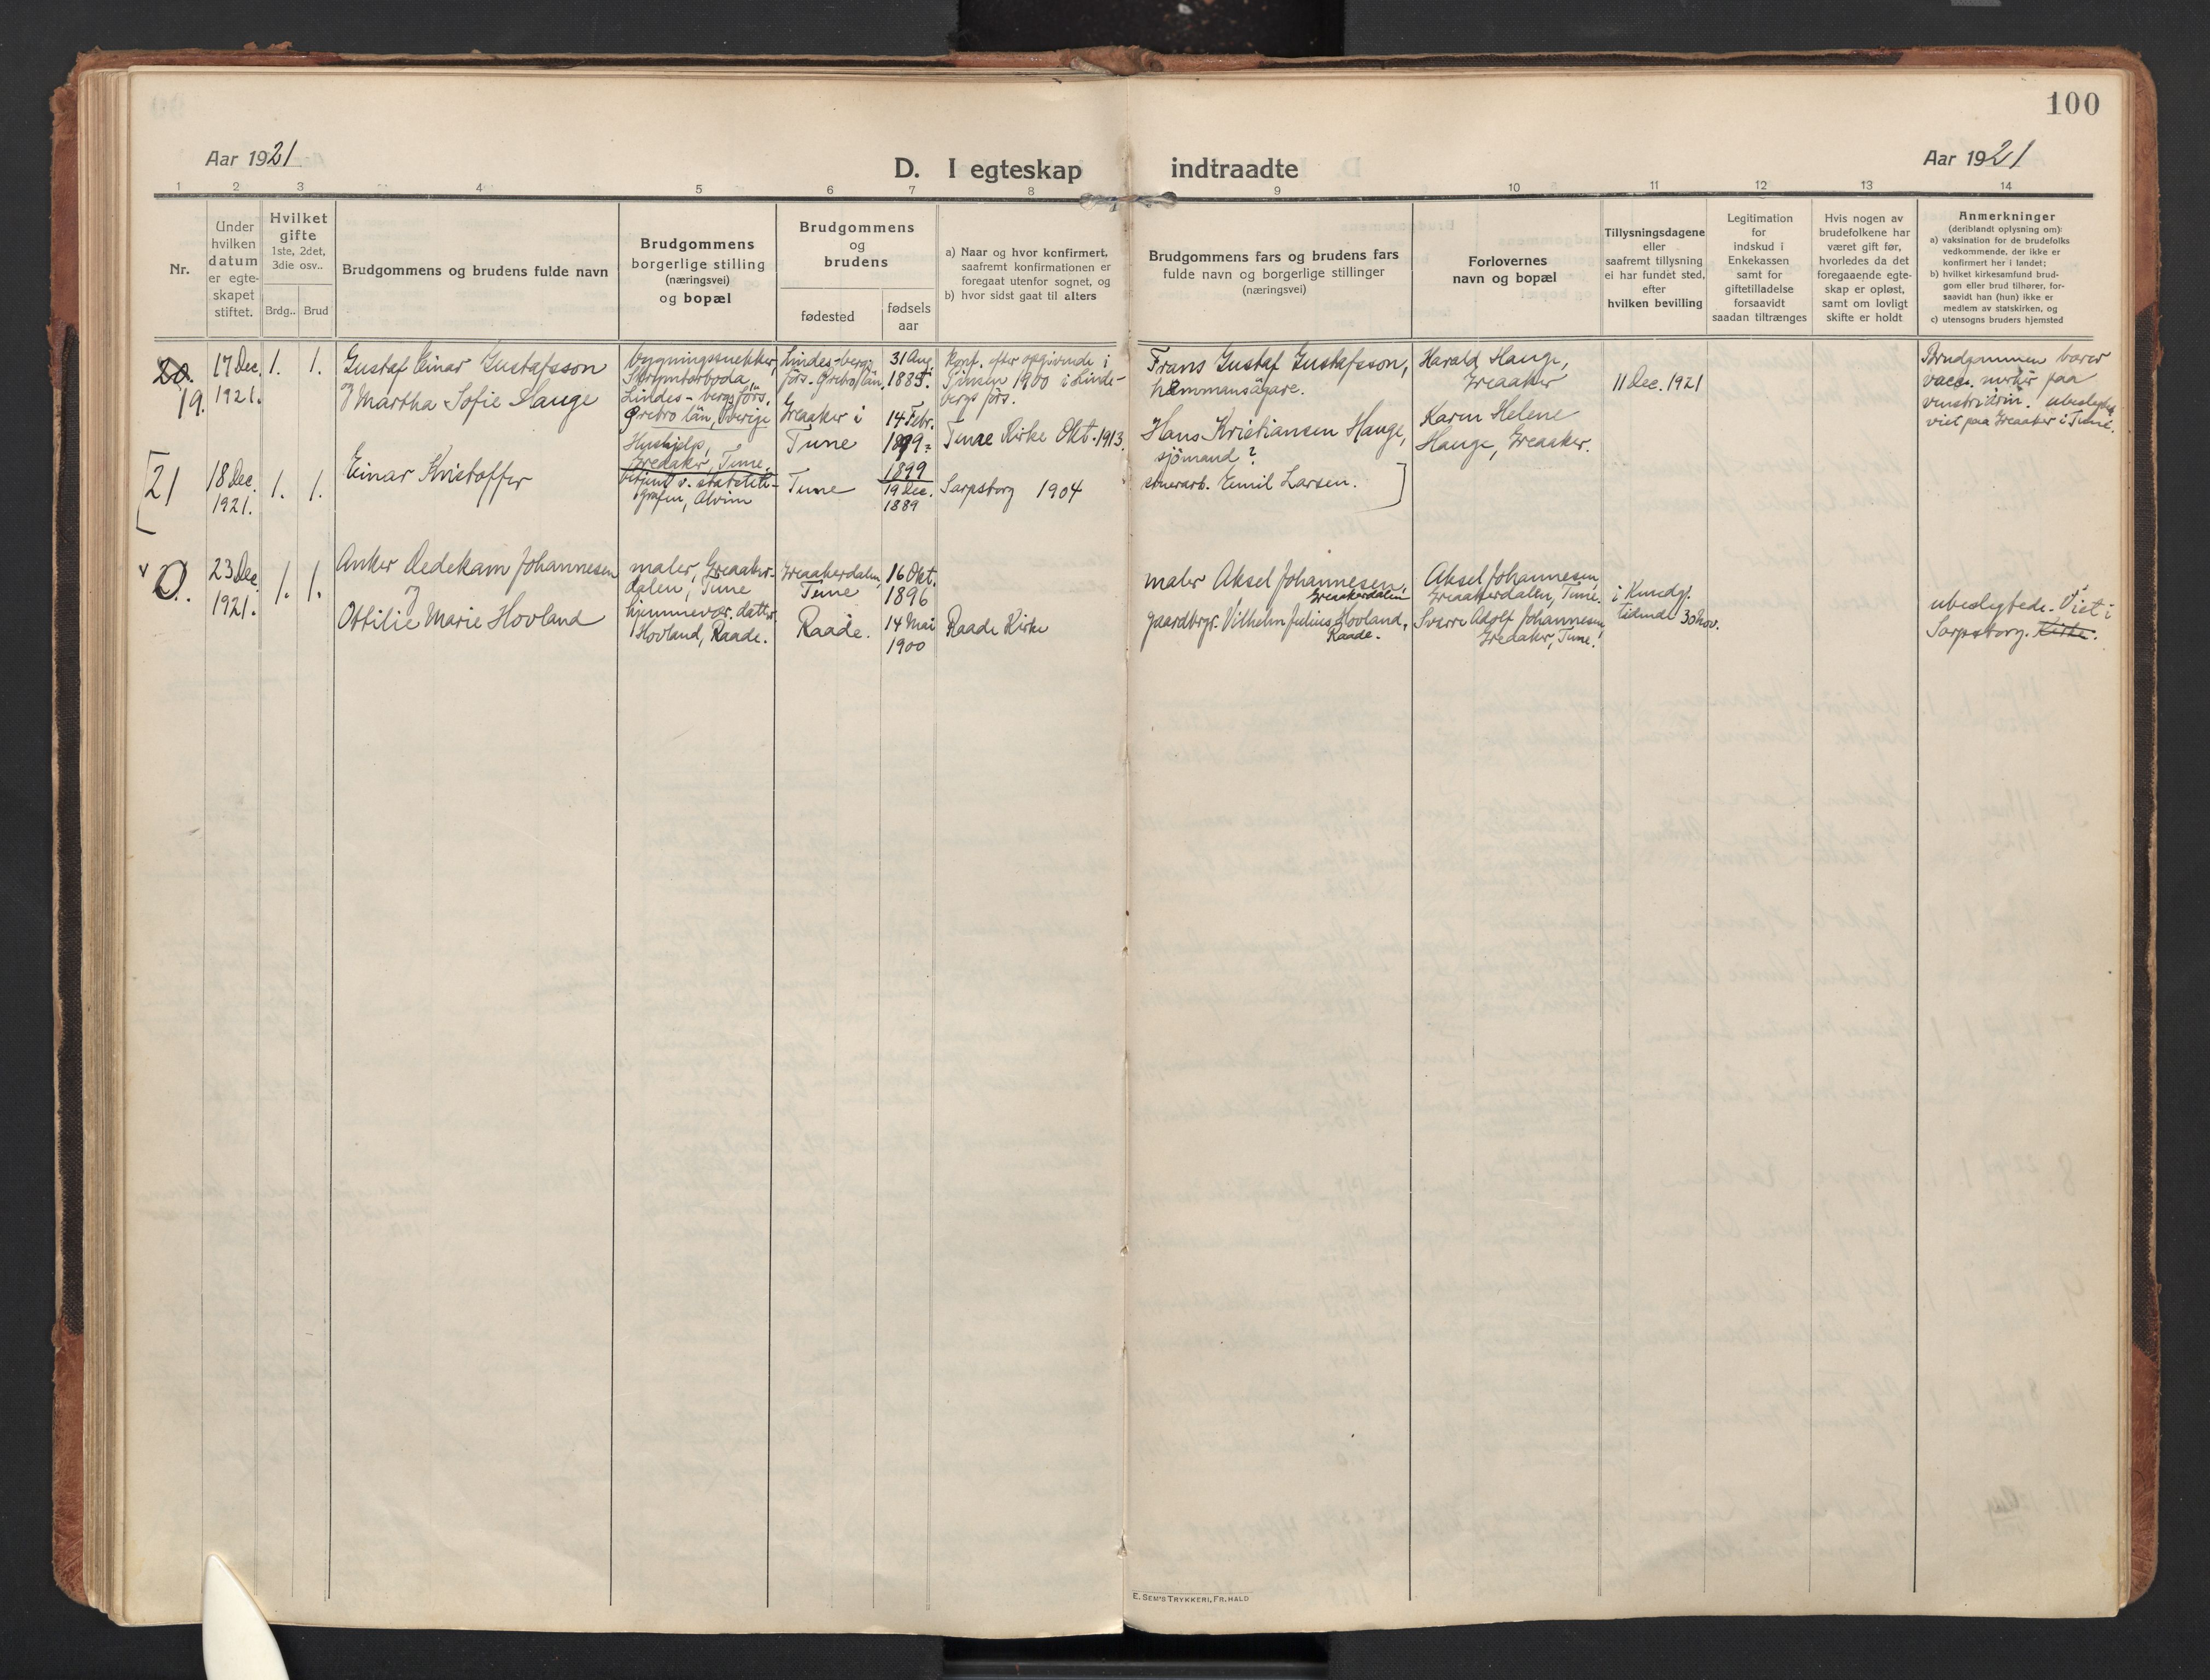 100
Aar 1921
D. I egteskap indtraadte
Aar 1921
1 2 3 4 5 6 7 8 9 10 11 12 13 14
Nr.
Under
hvilken
datum
er egte-
skapet
stiftet.
Hvilket
gifte
1ste, 2det,
3die osv..
Brdg..
Brud
Brudgommens og brudens fulde navn
Brudgommens
borgerlige stilling
(næringsvei)
og bopæl
Brudgommens
og
brudens
fødested
fødsels
aar
a) Naar og hvor konfirmert,
saafremt konfirmationen er
foregaat utenfor sognet, og
b) hvor sidst gaat til alters
Brudgommens fars og brudens fars
fulde navn og borgerlige stillinger
(næringsvei)
Forlovernes
navn og bopæl
Tillysningsdagene
eller
saafremt tillysning
ei har fundet sted,
efter
hvilken bevilling
Legitimation
for
indskud i
Enkekassen
samt for
giftetilladelse
forsaavidt
saadan tiltrænges
Hvis nogen av
brudefolkene har
været gift før,
hvorledes da det
foregaaende egte-
skap er opløst,
samt om lovligt
skifte er holdt
Anmerkninger
(deriblandt oplysning om):
a) vaksination for de brudefolks
vedkommende, der ikke er
konfirmert her i landet;
b) hvilket kirkesamfund brud-
gom eller brud tilhører, for-
saavidt han (hun) ikke er
medlem av statskirken, og
c) utensogns bruders hjemsted
20.
19.
17 Dec.
1921.
1. 1.
Gustaf Einar Gustafsson
og Martha Sofie Hauge
bygningssnekker,
Lindes-bergs förs.
Örebro län, Sverige
Hushjelp,
Greaaker, Tune.
Lindes-bergs
förs. Örebro län
Greaaker i
Tune
31 Aug.
1885.
14 Febr.
1899
1899
Konf. efter opgivende i
1900 i Linde-
bergs förs.
Tune Kirke Okt. 1913.
Frans Gustaf Gustafsson,
hemmansägare.
Hans Kristiansen Hauge,
sjömand?
Harald Hauge,
Greaaker
Karen Helene
Hauge, Greaaker.
11 Dec. 1921
Brudgommen bærer
vacc. merker paa
venstre arm. ubeslegtet
viet paa Greaaker i Tune.
[21
18 Dec.
1921.
1. 1.
Einar Kristoffer
betjent v. statstele-
grafen, Alvim
Tune
19 Dec.
1889
Sarpsborg 1904
Emil Larsen. ]
v 0.
23 Dec
1921.
1. 1.
Anker Dedekam Johannesen
og
Ottilie Marie Hovland
maler, Greaaker-
dalen, Tune
hjemmevær. datter
Hovland, Raade.
Greaakerdalen,
Tune
Raade.
16 Okt.
1896
14 Mai
1900
Raade Kirke
maler Aksel Johannesen,
Greaakerdalen
gaardbrgr. Vilhelm Julius Hovland,
Raade.
Aksel Johannesen,
Greaakerdalen, Tune.
Sverre Adolf Johannesen,
Greaaker, Tune.
i Kundgj.
tidende 30 Nov.
ubeslegtede. Viet i
Sarpsborg. Kirke.
E. SEM'S TRYKKERI, FR.HALD